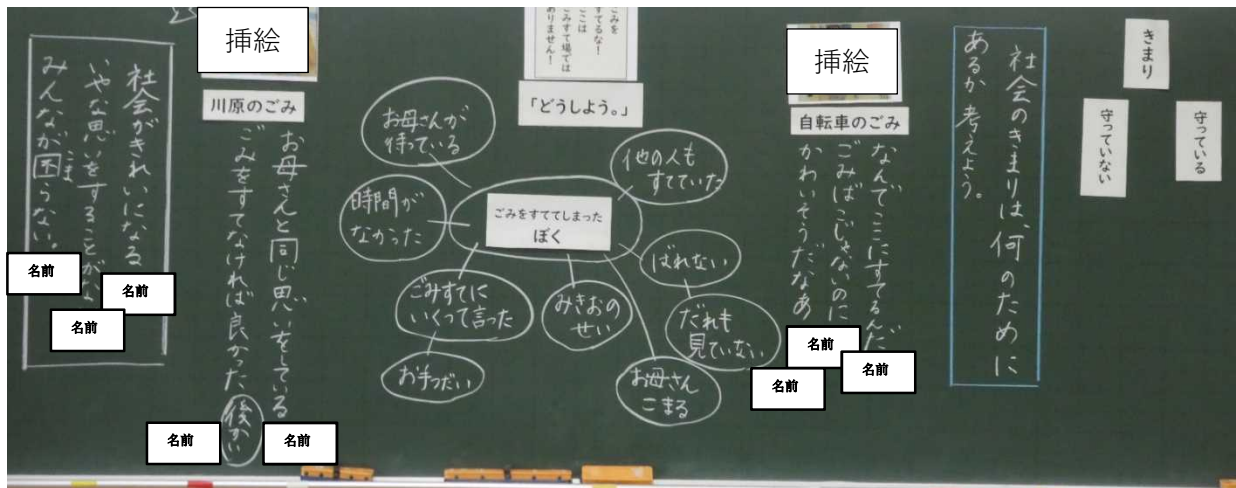 きまり
守っている
守っていない
社会のきまりは、何のために
あるか考えよう。
挿絵
自転車のごみ
なんでここにすてるんだ
ごみばこじゃないのに
かわいそうだなあ
名前
名前
名前
ごみを
すてるな！
ここは
ごみすて場では
ありません！
「どうしよう。」
ごみをすててしまった
ぼく
他の人も
すてていた
ばれない
だれも
見ていない
お母さん
こまる
みきおの
せい
ごみすてに
いくって言った
お手つだい
時間が
なかった
お母さんが
待っている
挿絵
川原のごみ
お母さんと同じ思いをしている
ごみをすてなければ良かった 後かい
名前
名前
社会がきれいになる
いやな思いをすることがな
みんなが困らない。
こま
名前
名前
名前